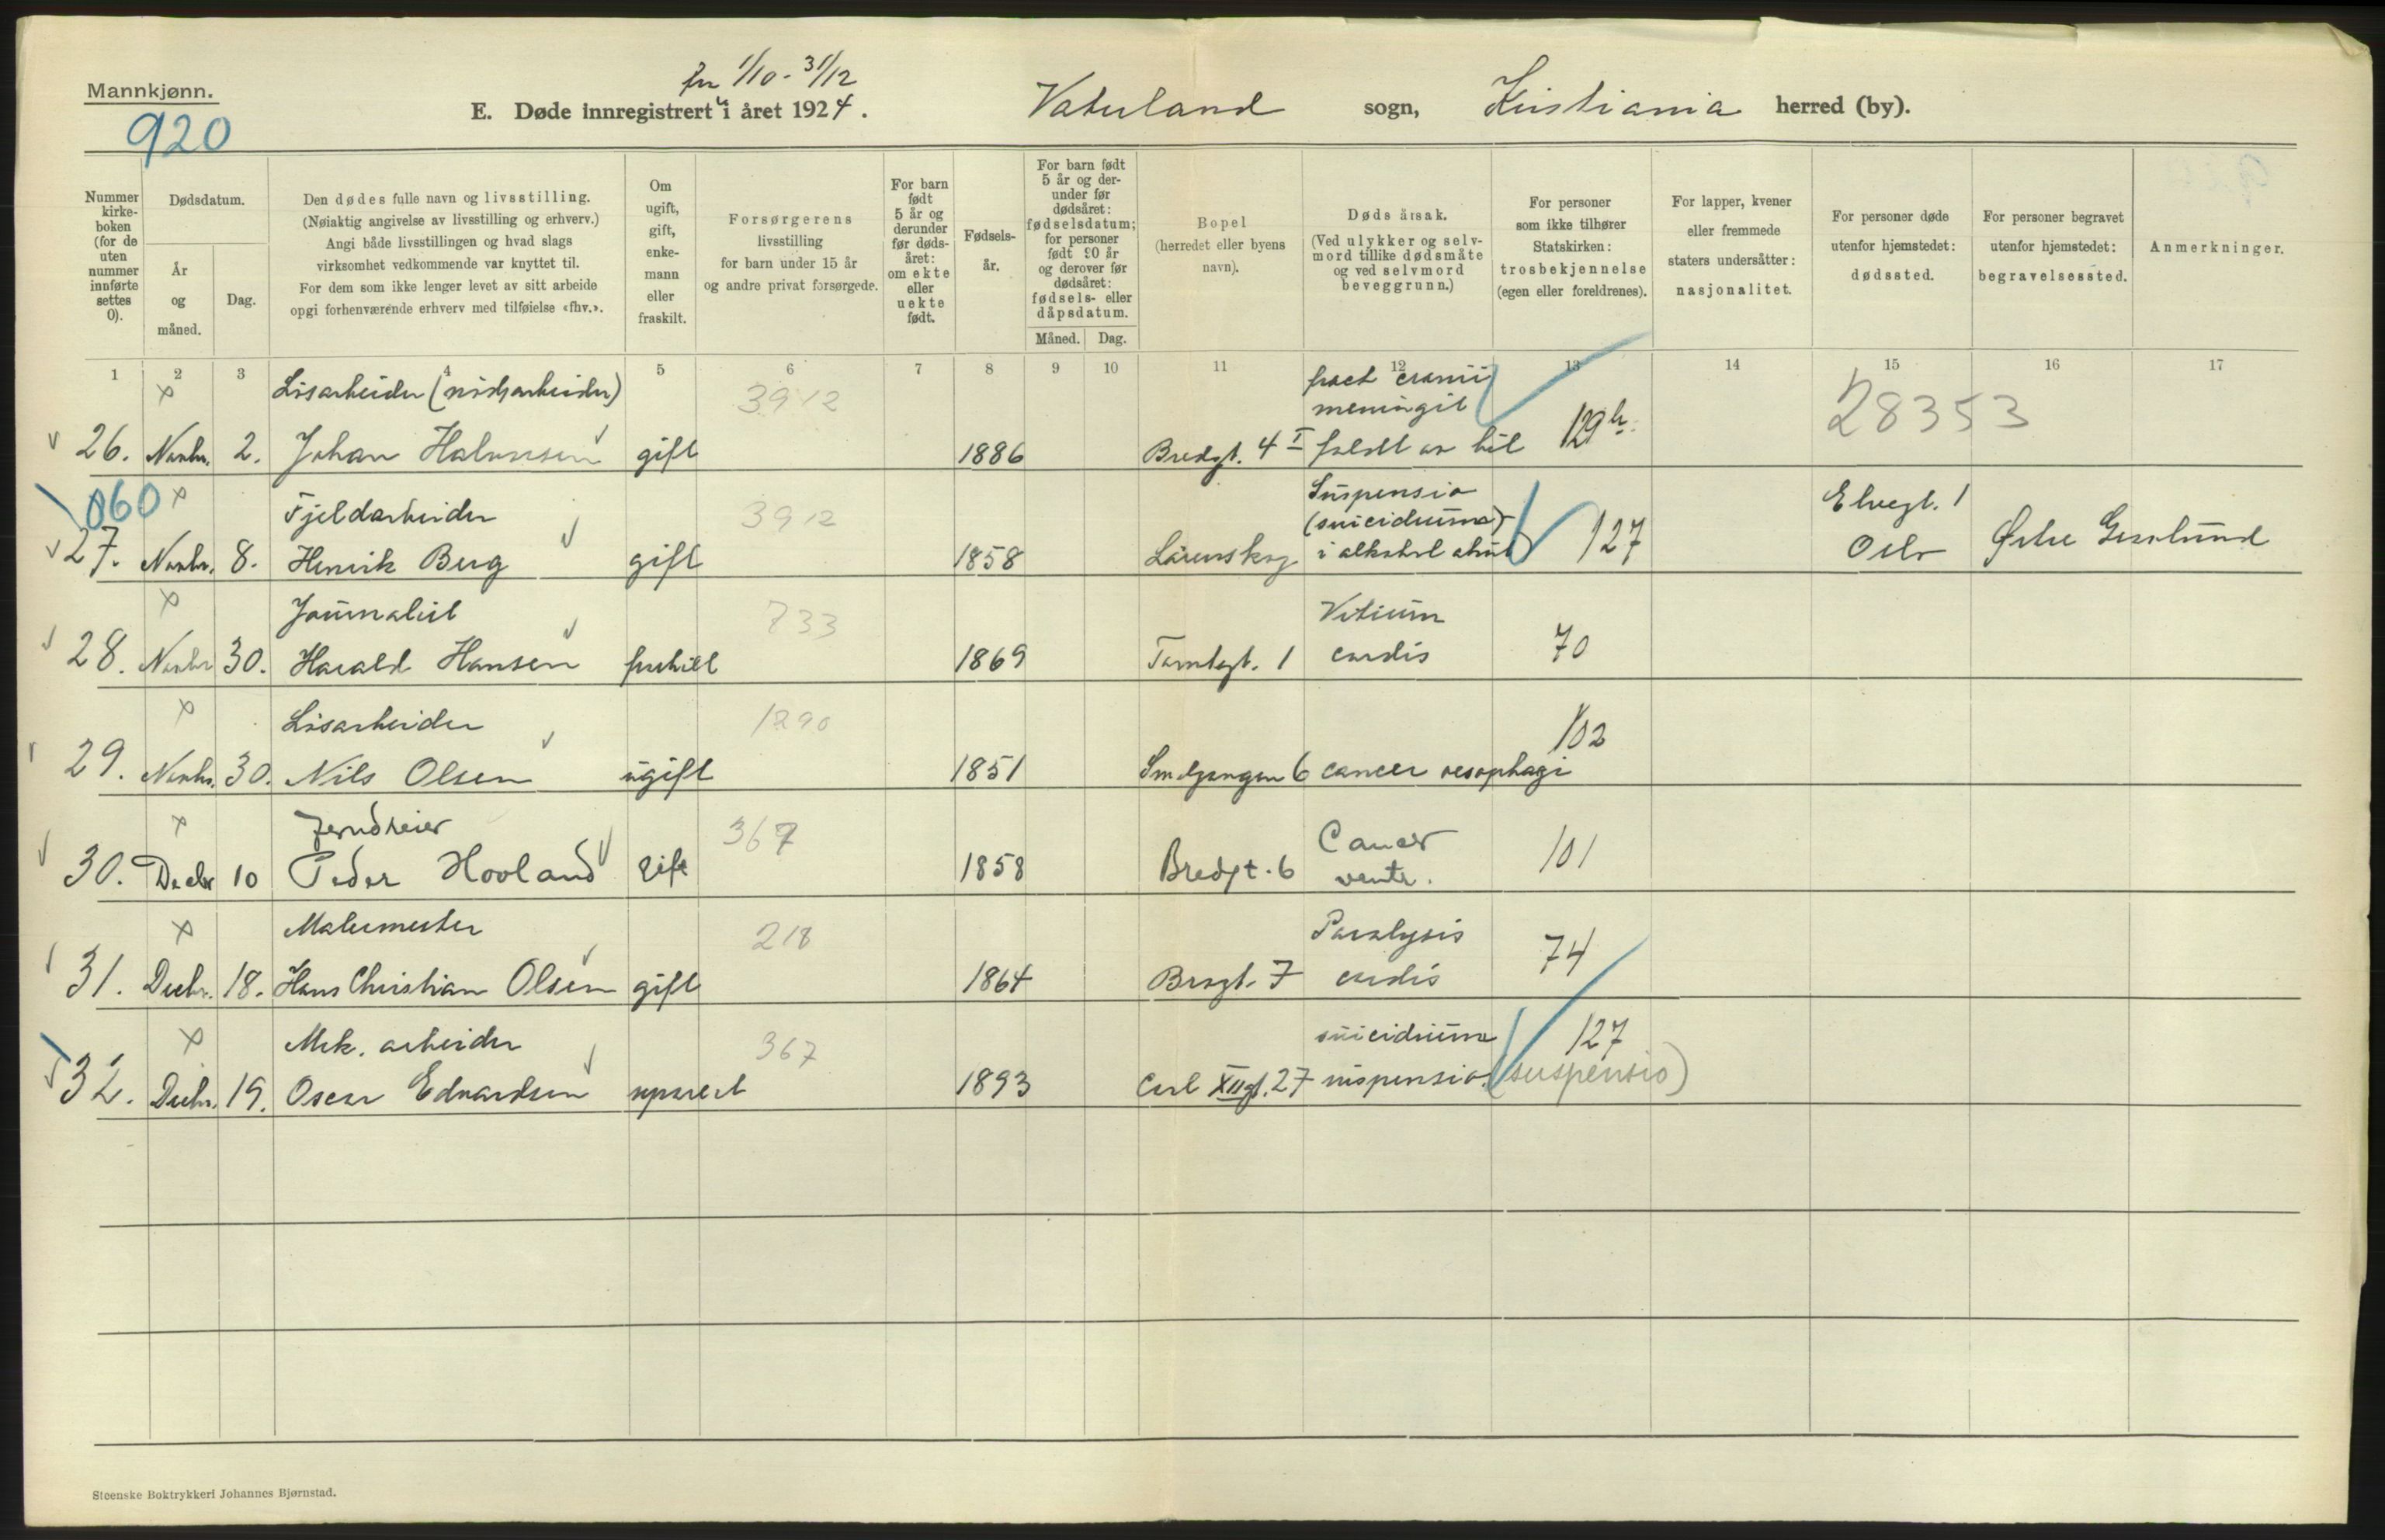 Mannkjønn.
920
fra 1/10 - 31/12
E. Døde innregistrert i året 1924.
Vaterland sogn, Kristiania herred (by).
Nummer kirke-boken (for de uten nummer innførte settes 0).
Dødsdatum.
År og måned.
Dag.
Den dødes fulle navn og livsstilling.
(Nøiaktig angivelse av livsstilling og erhverv.)
Angi både livsstillingen og hvad slags
virksomhet vedkommende var knyttet til.
For dem som ikke lenger levet av sitt arbeide
opgi forhenværende erhverv med tilføielse «fhv.».
Om ugift, gift, enke-mann eller fraskilt.
Forsørgerens
livsstilling
for barn under 15 år
og andre privat forsørgede.
For barn født 5 år og derunder før døds-året: om ekte eller uekte født.
Fødsels-år.
For barn født 5 år og der-under før dødsåret: fødselsdatum; for personer født 90 år og derover før dødsåret: fødsels- eller dåpsdatum.
Måned. Dag.
Bopel
(herredet eller byens navn).
Dødsårsak.
(Ved ulykker og selv-mord tillike dødsmåte og ved selvmord beveggrunn.)
For personer
som ikke tilhører
Statskirken:
trosbekjennelse
(egen eller foreldrenes).
For lapper, kvener
eller fremmede
staters undersåtter:
nasjonalitet.
For personer døde
utenfor hjemstedet:
dødssted.
For personer begravet
utenfor hjemstedet:
begravelsessted.
Anmerkninger.
1 2 3 4 5 6 7 8 9 10 11 12 13 14 15 16 17
x Løsarbeider 3912 fract cranii
meningit
28353
26. Novbr. 2. Johan Halvorsen gift 1886 Bredgt. 4 I faldt av bil 129 b.
060 x Fjeldarbeider 3912 Suspensio
(suicidium) Elvegt. 1
27. Novbr. 8. Henrik Berg gift 1858 Lørenskog i alkohol 127 Oslo Østre
x Journalist 733 Vitium
28. Novbr 30. Harald Hansen fraskilt 1869 Tomtegt. 1 cordis 70
x Løsarbeider 1290 102
29. Novbr. 30. Nils Olsen ugift 1851 Smalgangen 6 cancer oesophagi
x Jerndreier 367 Cancer
30. Decbr 10 Peder Hovland gift 1858 Bredgt. 6 ventr. 101
x Malermester 218 Paralysis
31. Decbr. 18. Hans Christian Olsen gift 1864 Brogt. 7 cordis 74
x Mek. arbeider 367 suicidium 127
32. Decbr. 19. Oscar Edvardsen separert 1893 Carl XIIgt. 27 suspensio. (suspensio)
Steenske Boktrykkeri Johannes Bjørnstad.